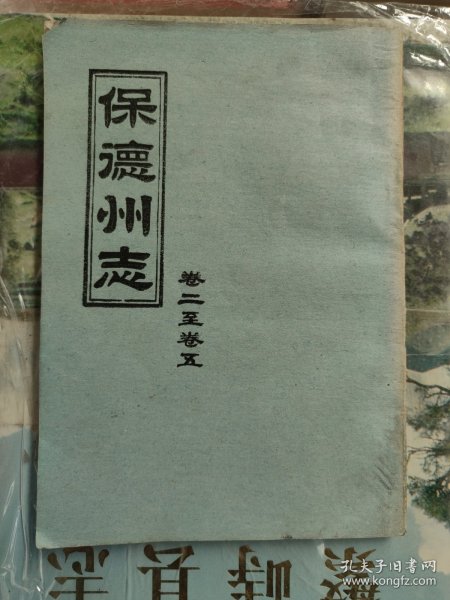 保德州志
卷二至卷五
繁峙县志
孔夫子旧书网
www.kongfz.com